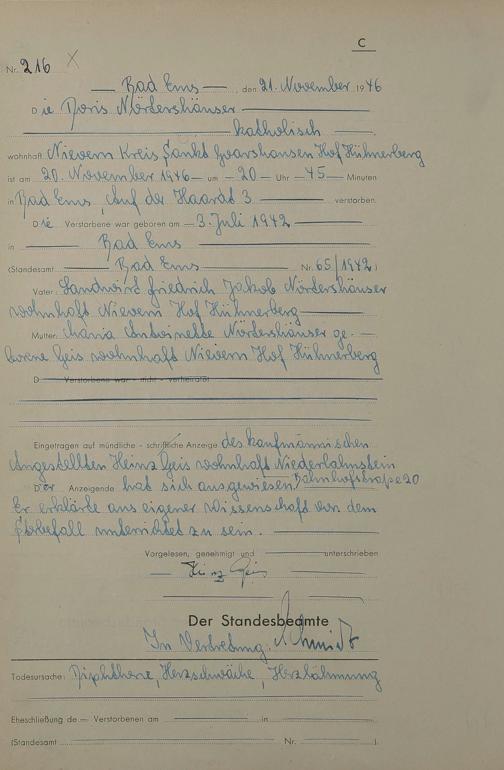 C
Nr. 216 X
Bad Ems, den 21. November 1946
Die Doris Nördershäuser
katholisch
wohnhaft Nievern Kreis Sankt Goarshausen Hof Hühnerberg
ist am 20. November 1946 um 20 Uhr 45 Minuten
in Bad Ems, Auf der Haardt 3 verstorben.
Die Verstorbene war geboren am 3. Juli 1942
in Bad Ems
(Standesamt Bad Ems Nr. 65/1942)
Vater: Landwirt Friedrich Jakob Nördershäuser
wohnhaft Nievern Hof Hühnerberg
Mutter: Maria Antoinette Nördershäuser ge-
borene Geis wohnhaft Nievern Hof Hühnerberg
D Verstorbene war - nicht - verheiratet
Eingetragen auf mündliche - schriftliche Anzeige des kaufmännischen
Angestellten Heinz Geis wohnhaft Niederlahnstein
Bahnhofstraße 20
Der Anzeigende hat sich ausgewiesen.
Er erklärte aus eigener Wissenschaft von dem
Sterbefall unterrichtet zu sein.
Vorgelesen, genehmigt und unterschrieben
Heinz Geis
Der Standesbeamte
In Vertretung: Schmidt
Todesursache: Diphtherie, Herzschwäche, Herzlähmung
Eheschließung de Verstorbenen am in
(Standesamt Nr. ).